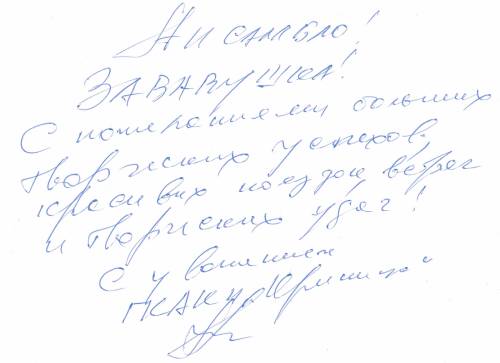 Ансамблю!
ЗАБАВУШКА!
С пожеланиями больших
творческих успехов,
красивых поездок, встреч
и творческих удач!
С уважением
"Криница"